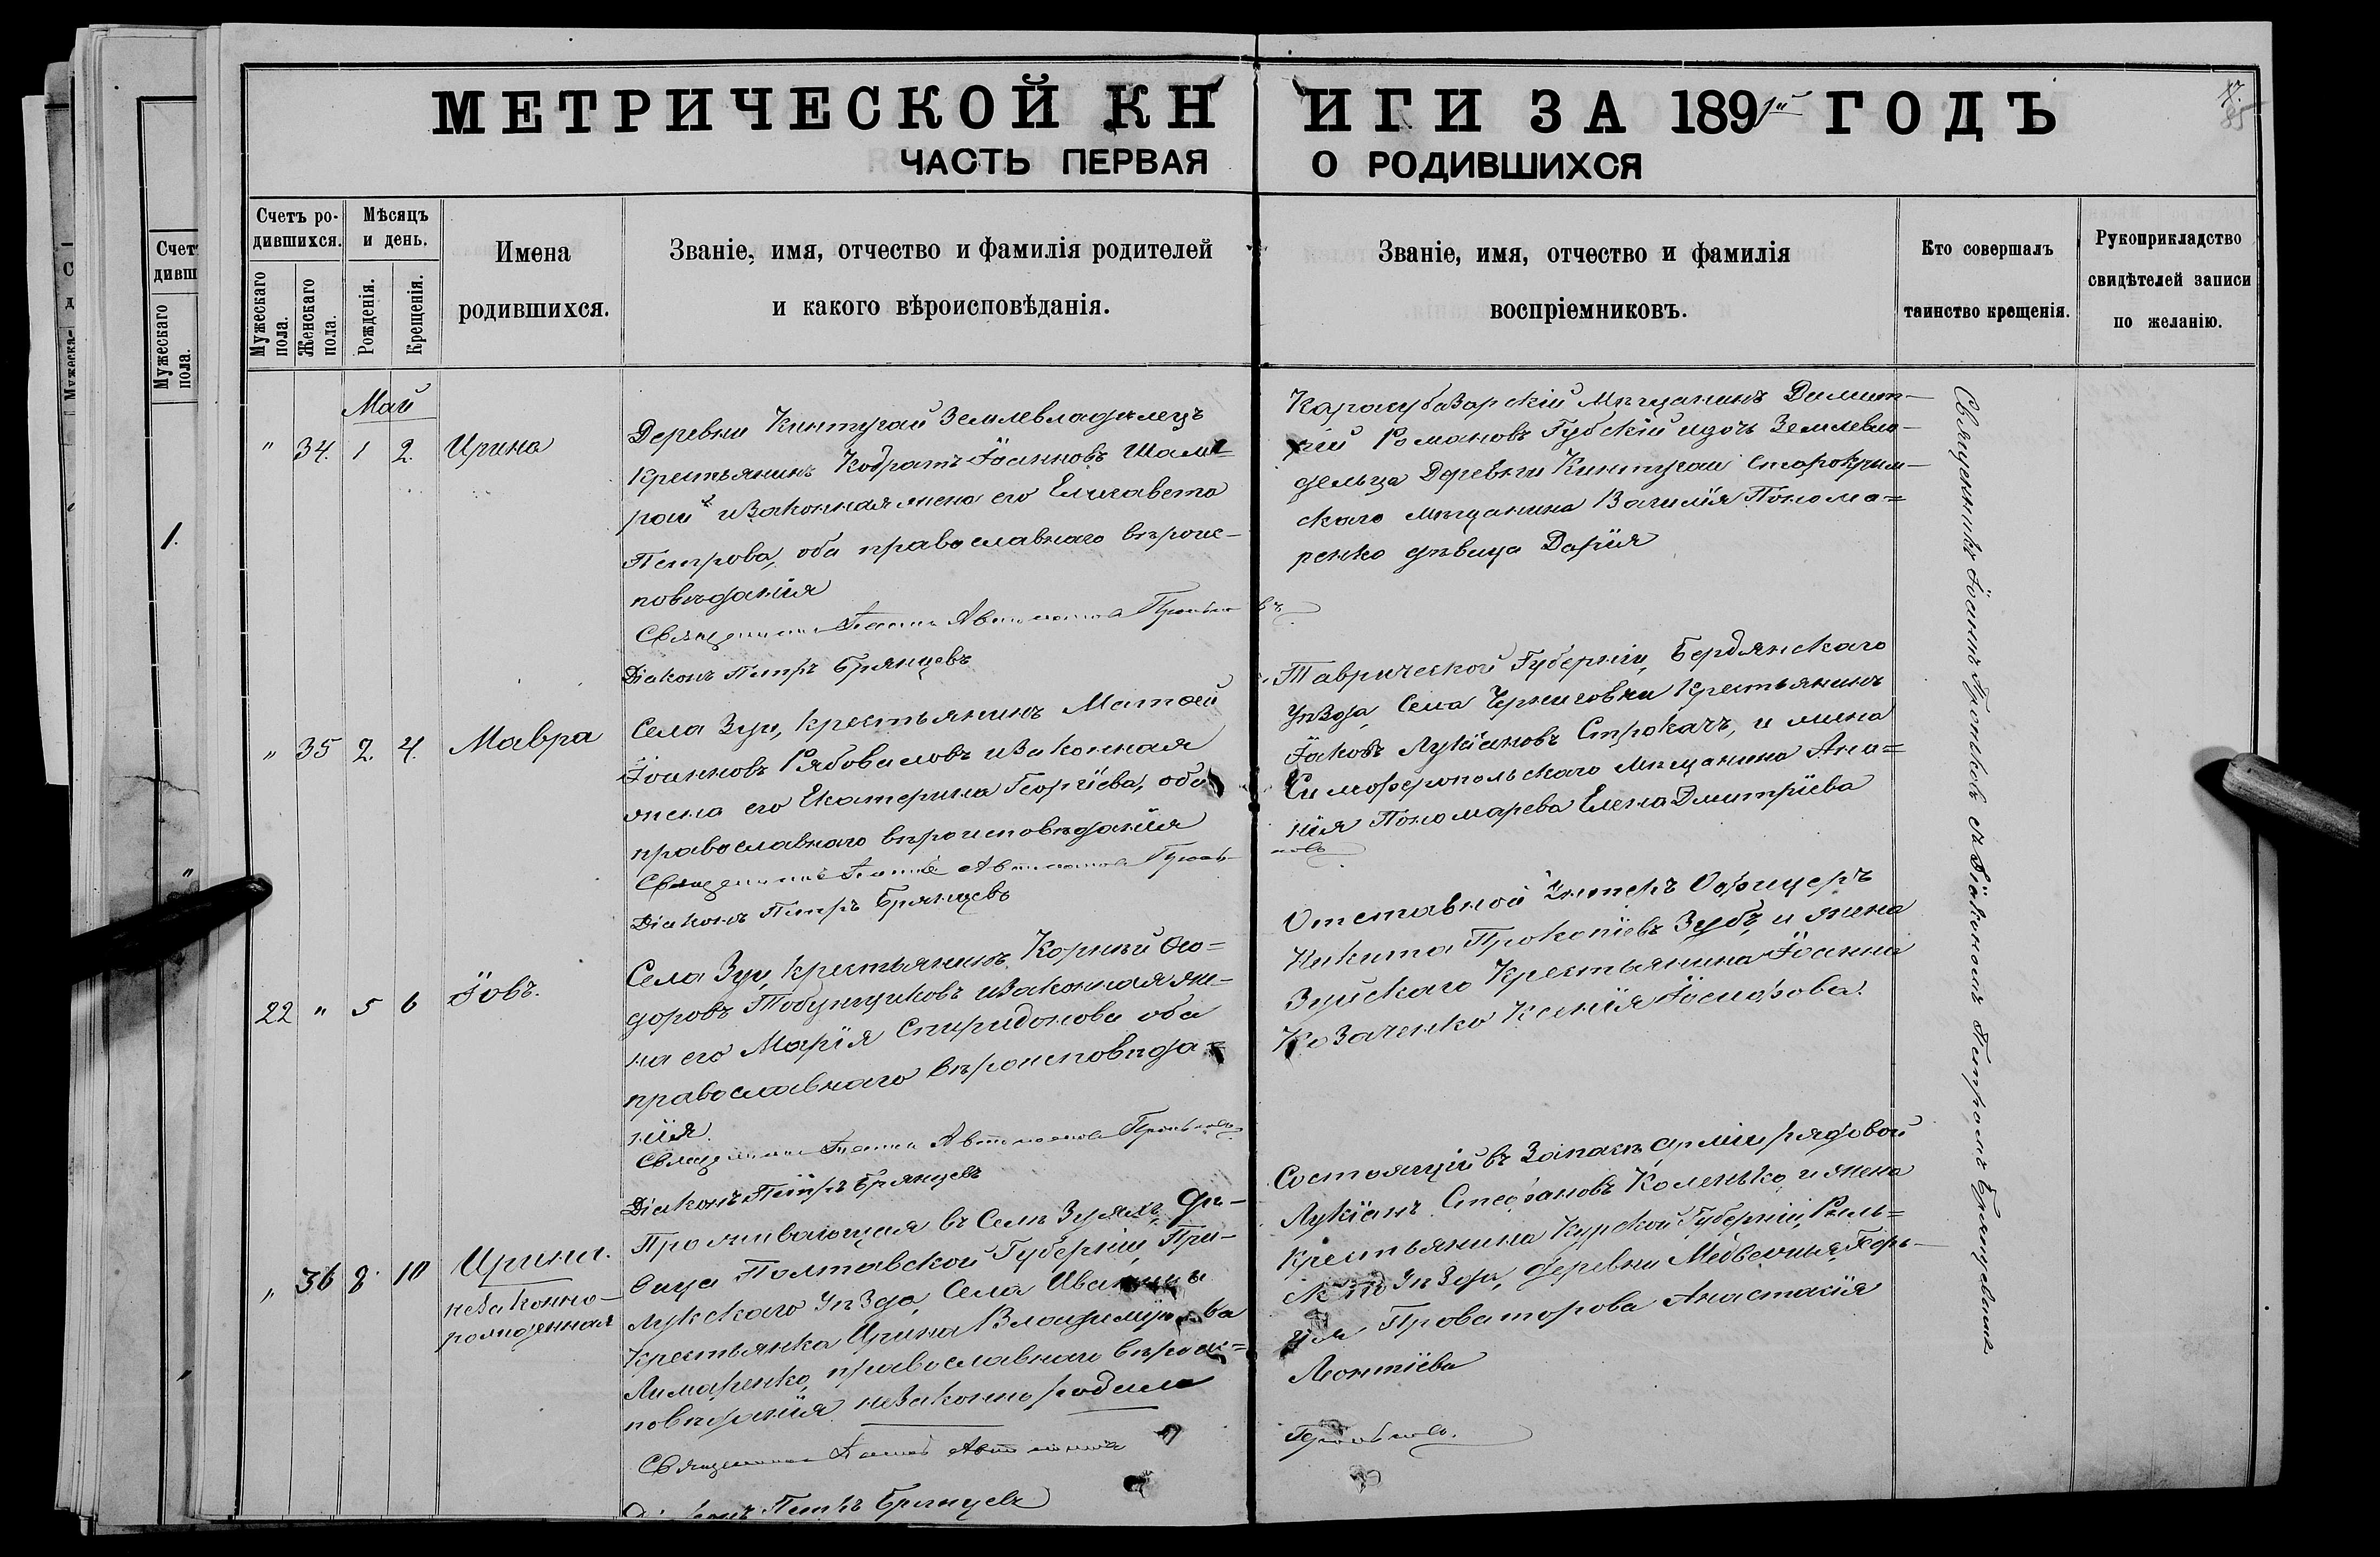 МЕТРИЧЕСКОЙ КНИГИ ЗА 1891й ГОДЪ
ЧАСТЬ ПЕРВАЯ О РОДИВШИХСЯ
Счетъ родившихся.
Мужескаго пола.
Женскаго пола.
Мѣсяцъ и день.
Рожденія.
Крещенія.
Имена
родившихся.
Званіе, имя, отчество и фамилія родителей
и какого вѣроисповѣданія.
Званіе, имя, отчество и фамилія
воспріемниковъ.
Кто совершалъ
таинство крещенія.
Рукоприкладство
свидѣтелей записи
по желанію.
Май
" 34. 1 2. Ирина
Деревни Кинтугай Землевладѣлецъ
Крестьянинъ Кодратъ Іоанновъ Шам=
рай и законная жена его Елисавета
Петрова, оба православнаго вѣроис-
повѣданія
Священникъ Іоаннъ Автономовъ
Діаконъ Петръ Брянцевъ
Карасубазарскій Мѣщанинъ Димит-
рій Романовъ Губскій и дочь Землевла-
дельца Деревни Кинтугай Старокрым-
скаго мѣщанина Василія Понома=
ренко дѣвица Дарія
" 35 2. 4. Мавра
Села Зуи, крестьянинъ Матѳей
Іоанновъ Рябоваловъ и законная
жена его Екатерина Георгіева, оба
православнаго вѣроисповѣданія
Священникъ Іоаннъ Автономовъ
Діаконъ Петръ Брянцевъ
Таврической Губерніи, Бердянскаго
уѣзда, Села Черниговки Крестьянинъ
Іаковъ Лукіановъ Строкачъ, и жена
Симферопольскаго мѣщанина Ана=
нія Пономарева Елена Дмитріева
22 " 5 6 Іовъ.
Села Зуи, крестьянинъ Корнѣй Ѳео=
доровъ Табунщиковъ и законная же-
на его Марія Спиридонова оба
православнаго вѣроисповѣда=
нія.
Священникъ Іоаннъ Автономовъ
Діаконъ Петръ Брянцевъ
Отставной Унтеръ Офицеръ
Никита Прокопіевъ Зубъ и жена
Зуйскаго Крестьянина Іоанна
Козаченко Ксенія Іосифова.
" 36 8. 10 Ирина.
незаконно-
рожденная
Проживающая въ Селѣ Зуяхъ, дѣ-
вица Полтавской Губерніи, При-
лукскаго уѣзда, Села
Крестьянка Ирина Владимірова
Лимаренко, православнаго вѣроис=
повѣданія незаконно родила
Священникъ Іоаннъ Автономовъ
Діаконъ Петръ Брянцевъ
Состоящій въ запасѣ арміи рядовой
Лукіанъ Стефановъ Коленько, и жена
Крестьянина Курской Губерніи, Рыль=
уѣзда, деревни
Проваторова Анастасія
Леонтіева
Священникъ Іоаннъ съ Діакономъ Петромъ Брянцевымъ
Счет
дивш
Мужескаго
пола.
1.